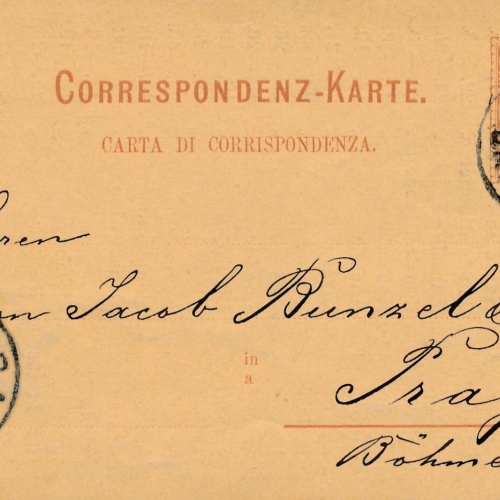 CORRESPONDENZ-KARTE.
CARTA DI CORRISPONDENZA.
Jacob Bunzel &
in
a
Prag
Böhme